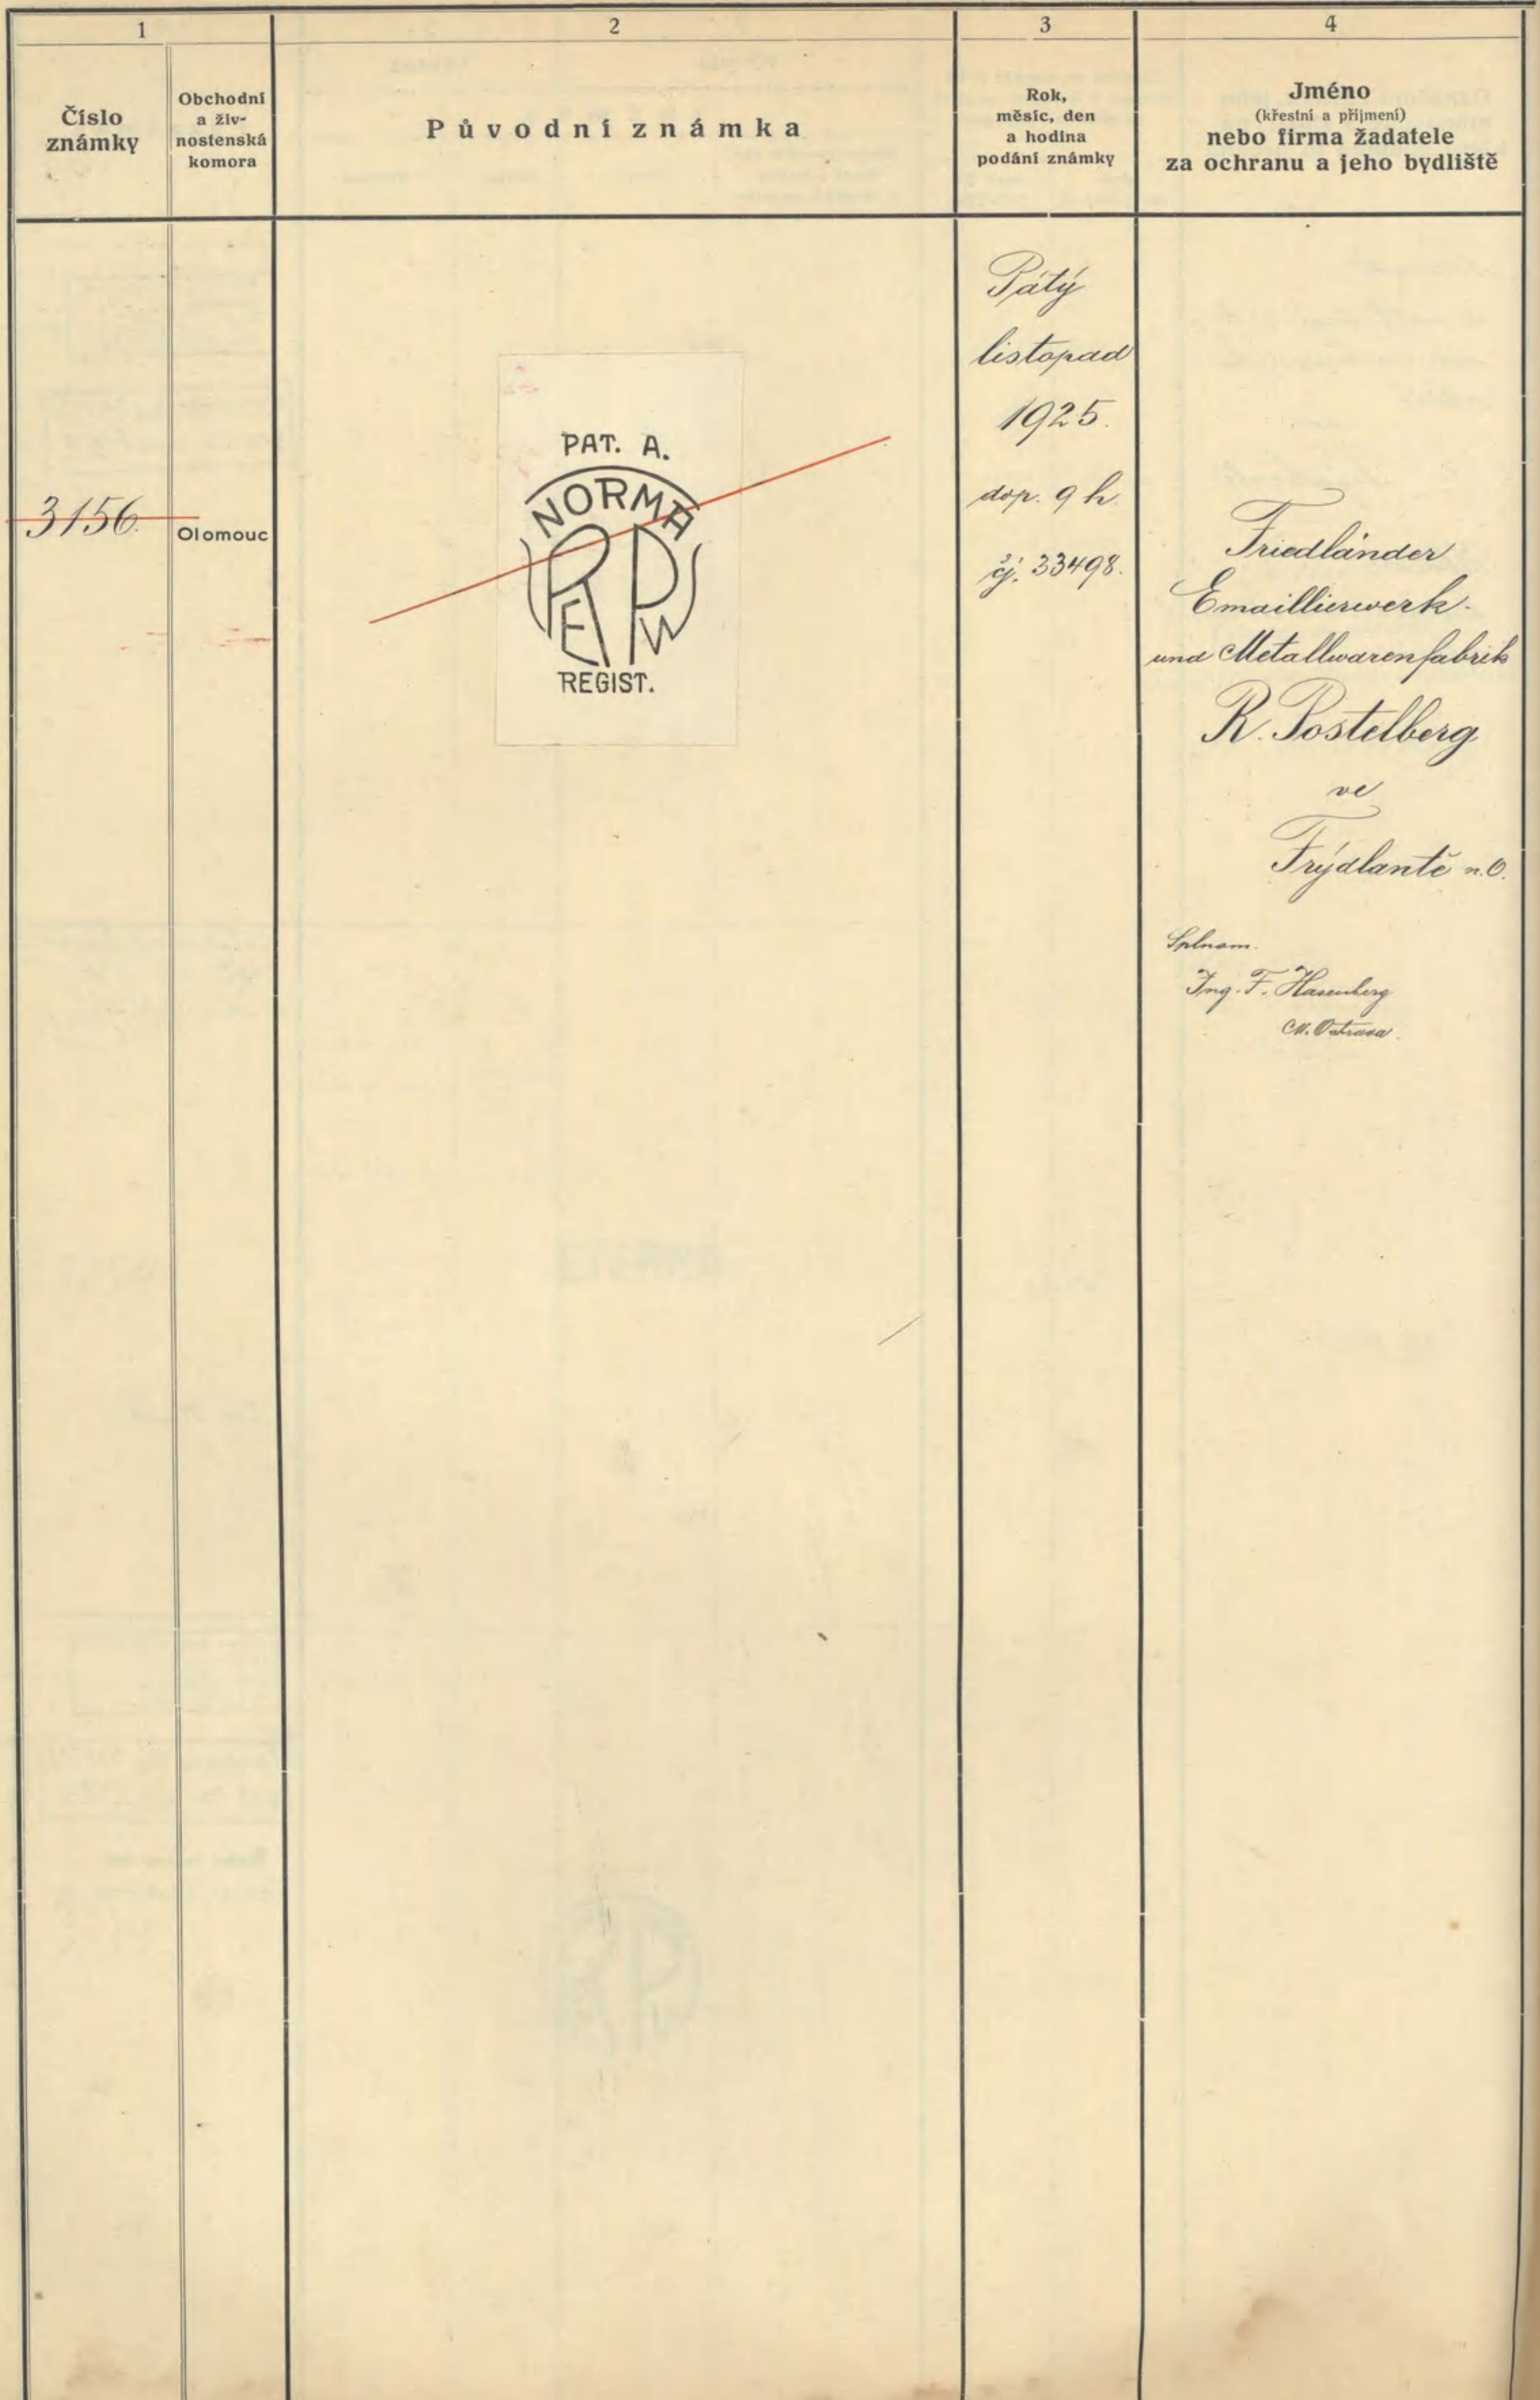 1
2
3
4
Číslo
známky
Obchodní
a živ-
nostenská
komora
Původní známka
Rok,
měsíc, den
a hodina
podání známky
Jméno
(křestní a příjmení)
nebo firma žadatele
za ochranu a jeho bydliště
3156.
Olomouc
PAT. A.
NORMA
REGIST.
Pátý
listopad
1925.
dop. 9 h.
čj. 33498.
Friedländer
Emaillierwerk-
und Metallwarenfabrik
R. Postelberg
ve
Frýdlantě n.O.
Splnom.
Ing. F. Hasenberg
M. Ostrava.